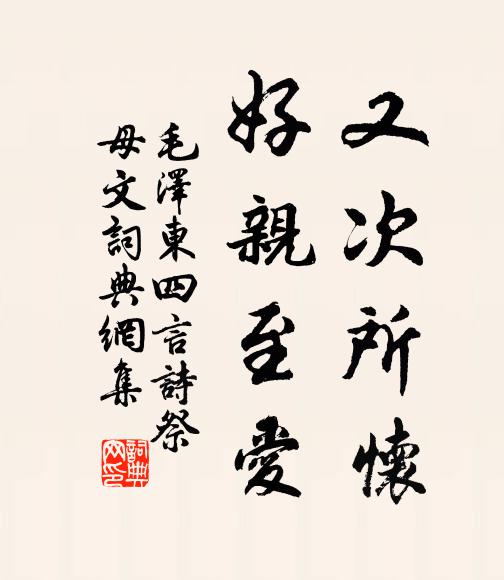 又次所懷
好親至愛
毛澤東四言詩祭
母文詞典網集
詞典
网印